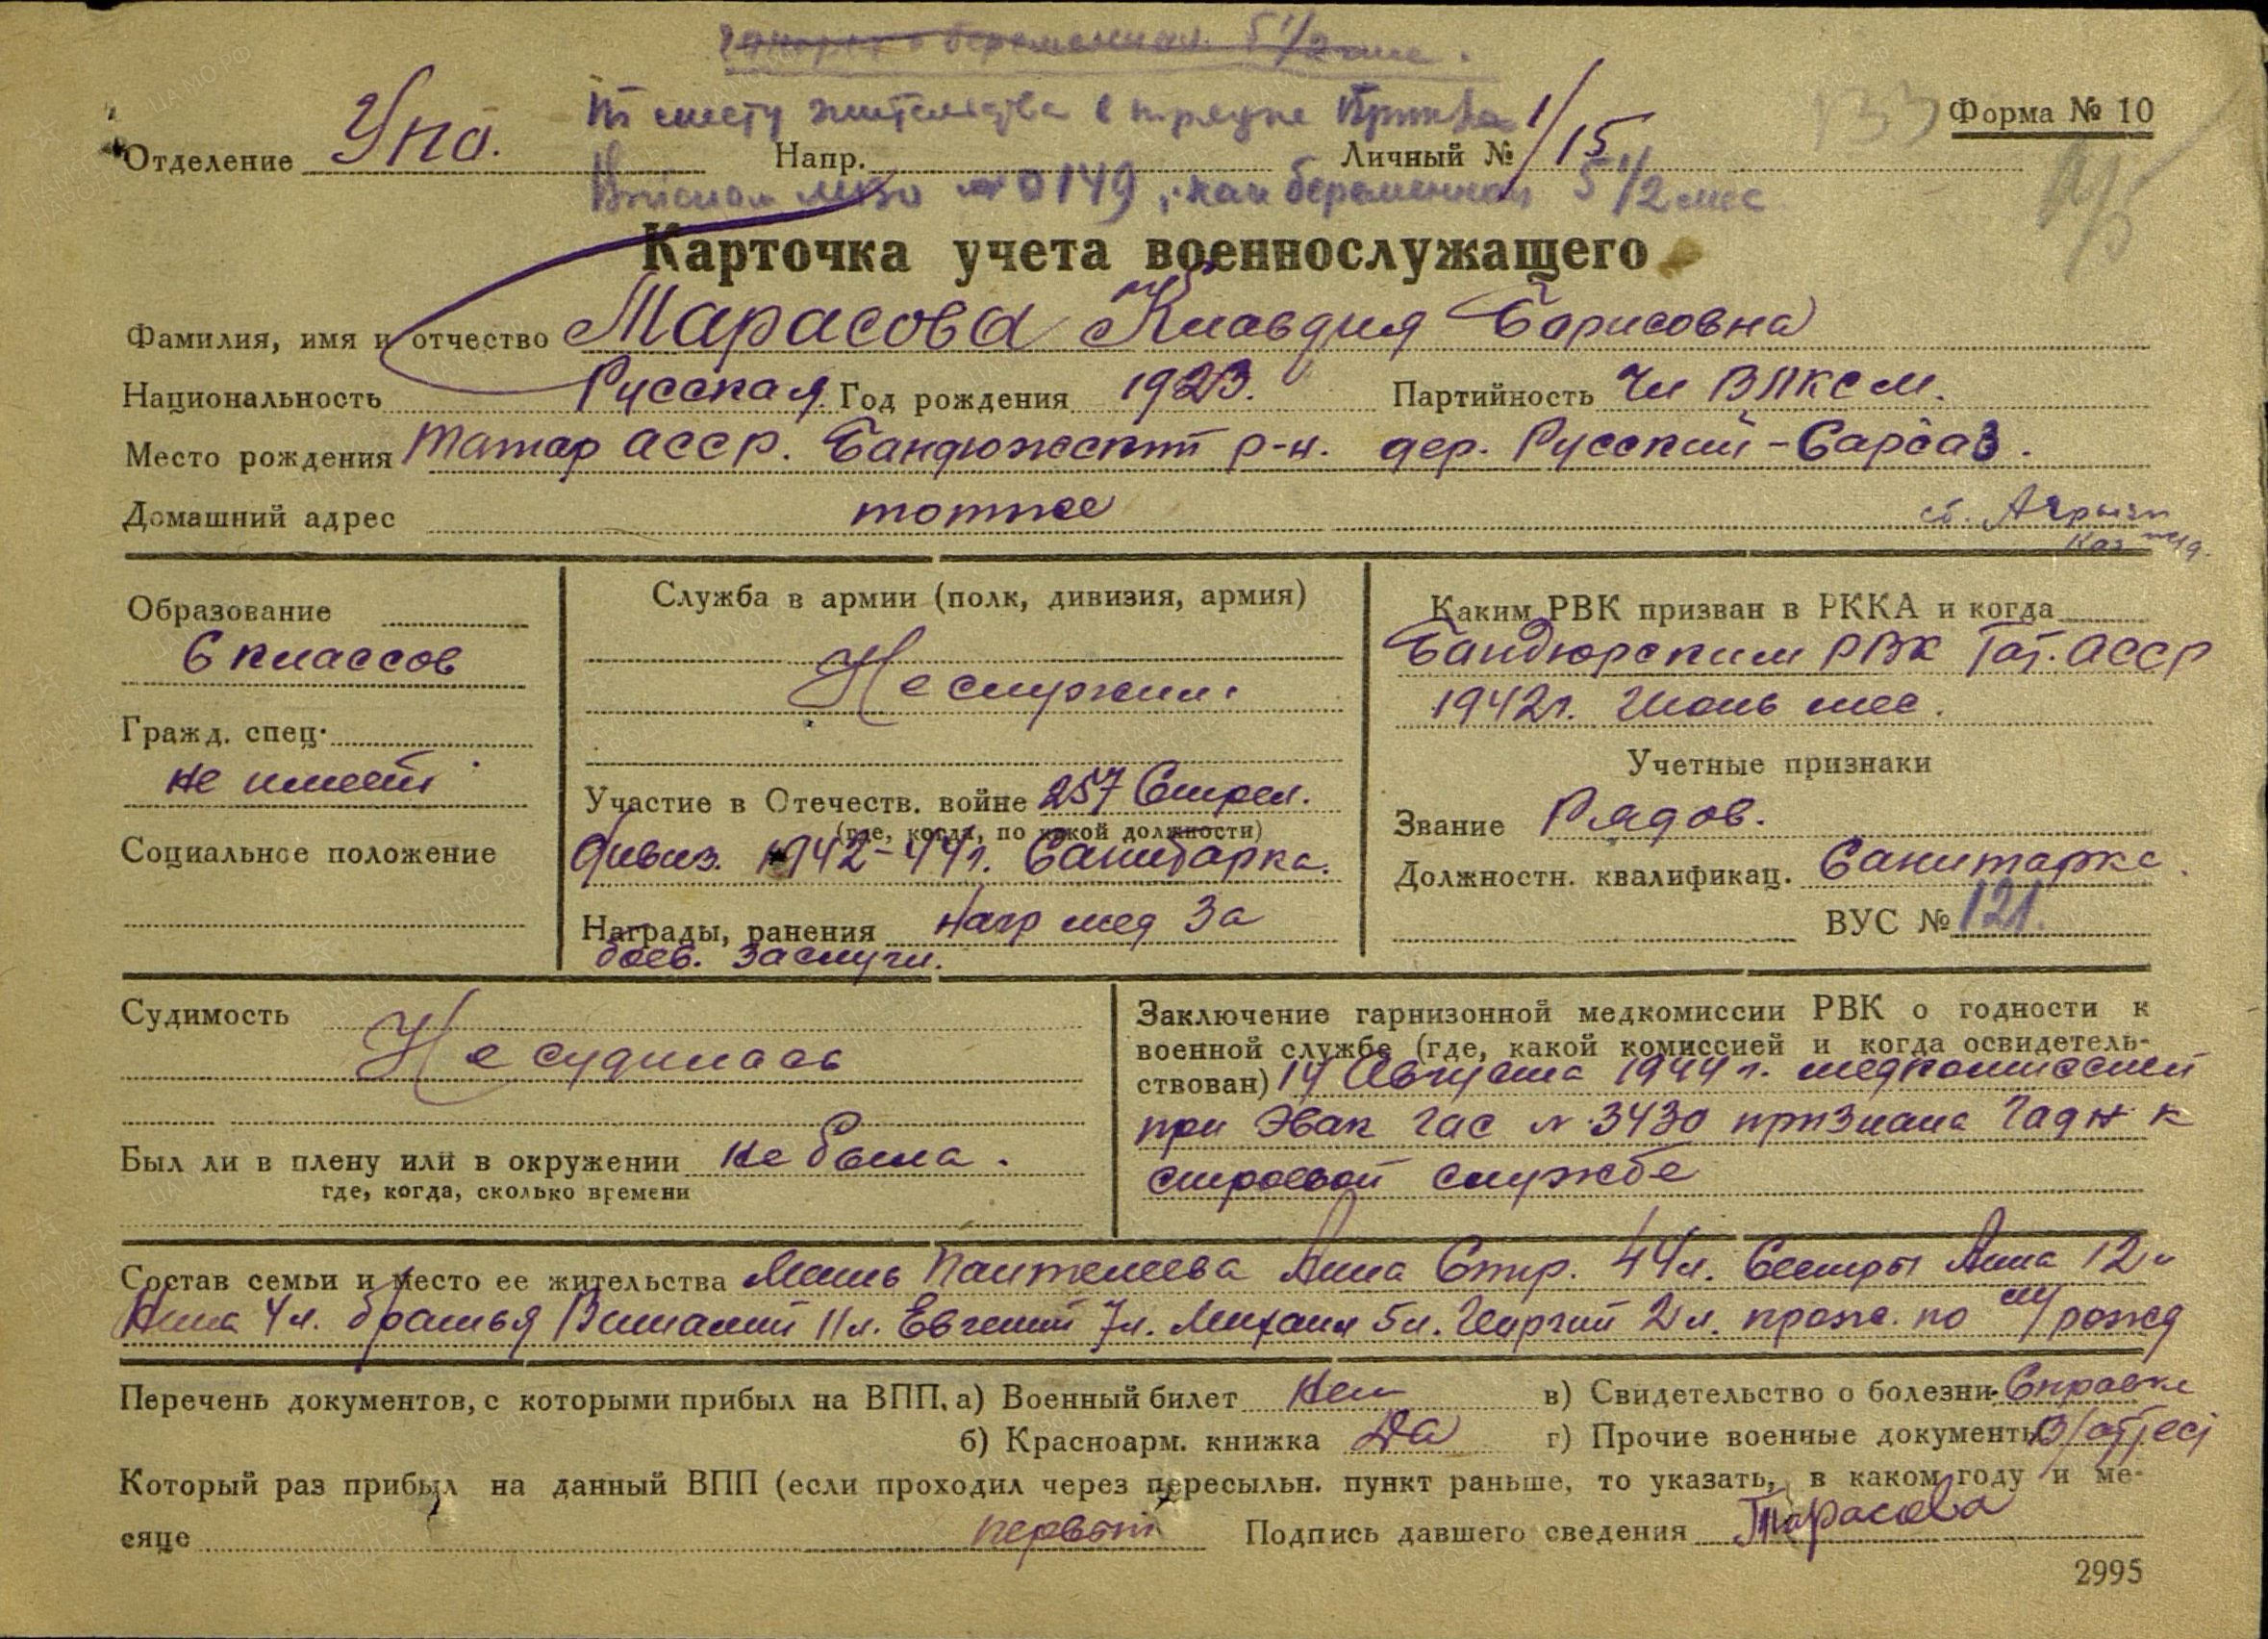 беременная 5 1/2 мес.
По месту жительства в порядке Приказа
Форма № 10
Отделение Упо. Напр. Личный № 1/15
0149, как беременная 5 1/2 мес
Карточка учета военнослужащего
Фамилия, имя и отчество Тарасова Клавдия Борисовна
Национальность Русская Год рождения 1923. Партийность Чл ВЛКСМ.
Место рождения Татар АССР. Бандюжский р-н. дер. Русский-Сарсаз.
Домашний адрес тотже
ст. Агрызи
Каз жел д.
Образование
6 классов
Гражд. спец.
не имеет
Социальное положение
Служба в армии (полк, дивизия, армия)
Не служил.
Участие в Отечеств. войне 257 Стрел.
(где, когда, по какой должности)
дивиз. 1942-44г. Санитарка.
Награды, ранения Нагр мед За
боев. заслуги.
Каким РВК призван в РККА и когда
Бандюрским РВК Тат. АССР
1942г. Июнь мес.
Учетные признаки
Звание Рядов.
Должностн. квалификац. Санитарка
ВУС № 121.
Судимость
Не судилась
Был ли в плену или в окружении не была.
где, когда, сколько времени
Заключение гарнизонной медкомиссии РВК о годности к
военной службе (где, какой комиссией и когда освидетель-
ствован) 14 Августа 1944 г. медкомиссией
при Эвак гос № 3430 признана годн к
строевой службе
Состав семьи и место ее жительства Мать Пантелеева Анна Стр. 44л. Сестры Анна 12л
Нина 4л. братья Виталий 11л. Евгений 7л. Михаил 5л. Георгий 2л. прож. по м/рожд
Перечень документов, с которыми прибыл на ВПП. а) Военный билет нет в) Свидетельство о болезни Справке
б) Красноарм. книжка Да г) Прочие военные документы
Который раз прибыл на данный ВПП (если проходил через пересыльн. пункт раньше, то указать, в каком году и ме-
сяце первый Подпись давшего сведения Тарасова
2995